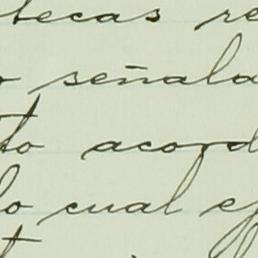 tecas re
o señala
to acord
lo cual ej